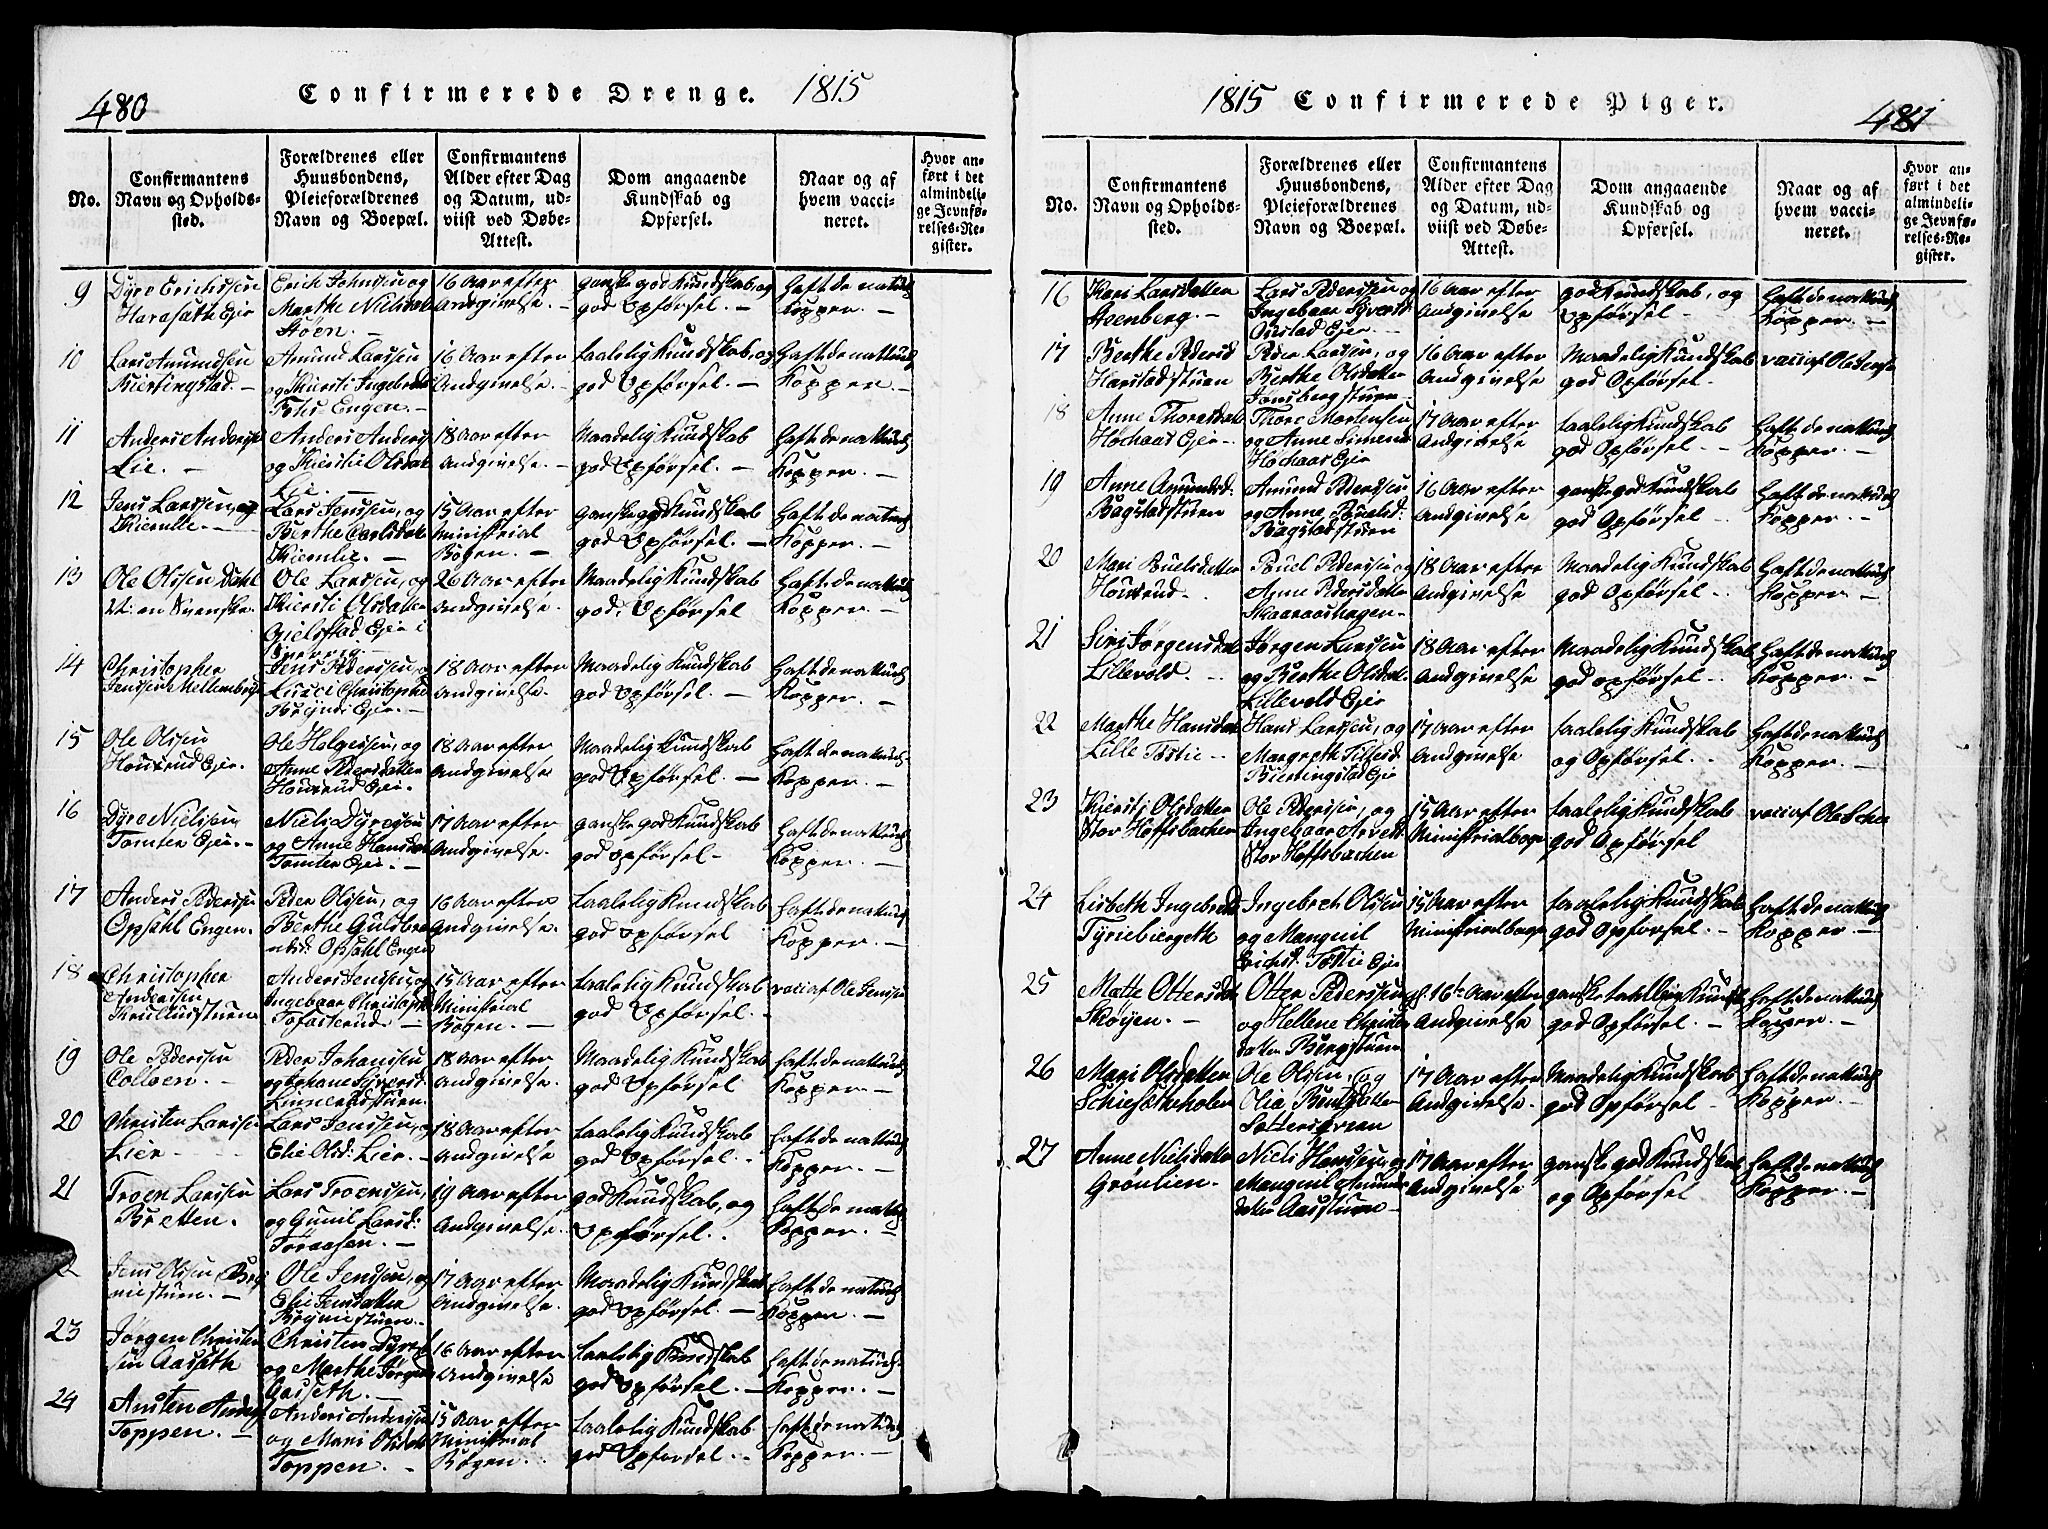 480
Confirmerede Drenge. 1815
No.
Confirmantens Navn og Opholdssted.
Forældrenes eller Huusbondens, Pleieforældrenes Navn og Boepæl.
Confirmantens Alder efter Dag og Datum, udviist ved Døbe-Attest.
Dom angaaende Kundskab og Opførsel.
Naar og af hvem vaccineret.
Hvor anført i det almindelige Jevnførelses-Register.
9 Dyre Erichssen Harasæth Ejer
Erich Johnssen og Marthe Nielsdat Støen. –
16 Aar efter Andgivelse. –
ganske god Kundskab, og god Opførsel. –
Haft de naturl: Kopper. –
10 Lars Amundsen Biertingstad. –
Amund Larssen og Kiersti Ingebrets Engen. –
16 Aar efter Andgivelse. –
taalelig Kundskab, og god Opførsel. –
Haft de naturl: Kopper. –
11 Anders Anderss Lie. –
Anders Anders og Kierstie Olsdat Lie. –
18 Aar efter Andgivelse. –
Maadelig Kundskab god Opførsel. –
Haft de naturl: Kopper. –
12 Jens Larssen, Kiemlie. –
Lars Jenssen, og Berthe Carlsdat Kiemlie. –
15 Aar efter Ministerial Bogen. –
ganske god Kundskab god Opførsel. –
Haft de naturl: Kopper. –
13 Ole Olssen Dahl en Svenske
Ole Larssen, og Kiersti Olsdatter Gielsstad Ejer i
26 Aar efter Andgivelse.
Maadelig Kundskab god, Opførsel
Haft de naturl: Kopper. –
14 Christopher Jenssen Mellemberg
Jens Pederssen og Lisci Christophe Bryni Ejer. –
18 Aar efter Andgivelse.
Maadelig Kundskab god Opførsel. –
Haft de naturl: Kopper. –
15 Ole Olssen Houkrud Ejer.
Ole Helgessen, og Anne Pedersdatter Houkrud Ejer.
18 Aar efter Andgivelse
Maadelig Kundskab god Opførsel. –
Haft de naturl: Kopper. –
16 Dyre Nielssen Tomten Ejer. –
Niels Dyressen og Anne Hansdat Tomten Ejer. –
17 Aar efter Andgivelse.
ganske god Kundskab god opførsel –
Haft de naturl: Kopper. –
17 Anders Pederssen Opsahl Engen.
Peder Olssen, og Berthe Guldbrandsd: Opsahl Engen
16 Aar efter Andgivelse.
taalelig Kundskab god opførsel
Haft de naturl: Kopper. –
18 Christopher Anderssen
Anders Jenssen, og Ingebaar Christoph Tofasterud. –
15 Aar efter Ministerial Bogen. –
taalelig Kundskab god Opførsel. –
vacc: af Ole Jenssen
19 Ole Pederssen Colloen. –
Peder Johanssen og Johane Syversd:
18 Aar efter Andgivelse.
Maadelig Kundskab god Opførsel
Haft de naturl: Kopper. –
20 Christen Larssen Lier
Lars Jenssen, og Elie Olsd: Lier. –
18 Aar efter Andgivelse
taalelig Kundskab god Opførsel. –
Haft de naturl: Kopper. –
21 Troen Larssen Bretten.
Lars Troenssen, og Gunil Larsd: Toraasen. –
19 Aar efter Andgivelse.
god Kundskab, og Opførsel. .
Haft de naturl: Kopper. –
Jens Olssen, Brynistuen. –
Ole Jenssen, og Elie Jensdatter Brynie stuen. –
17 Aar efter Andgivelse.
Maadelig Kundskab god Opførsel. –
Haft de naturl: Kopper. –
23 Jørgen Christensen Aasæth
Christen Dyress og Marthe Jørgens Aaseth. –
16 Aar efter Andgivelse
taalelig Kundskab god Opførsel. –
Haft de naturl: Kopper. –
24 Austen Anders Toppen. –
Anders Anderssen og Mari Olsdatt Toppen. –
15 Aar efter Ministerial Bogen.
taalelig Kundskab god Opførsel. –
Haft de naturl: Kopper. –
1815 Confirmerede Piger.
481
No.
Confirmantens Navn og Opholdssted.
Forældrenes eller Huusbondens, Pleieforældrenes Navn og Boepæl.
Confirmantens Alder efter Dag og Datum, udviist ved Døbe-Attest.
Dom angaaende Kundskab og Opførsel.
Naar og af hvem vaccineret.
Hvor anført i det almindelige Jevnførelses-Register.
16 Kari Larsdatter Steenberg. –
Lars Pederssen og Ingebaar Syversd Ejer. –
16 Aar efter Andgivelse
god Kundskab, og Opførsel –
Haft de naturl: Kopper. –
17 Berthe Pedersd Harstadstuen
Peder Larssen, og Berthe Olsdatter Jonsbergstuen –
16 Aar efter Andgivelse
Maadelig Kundskab god Opførsel –
vacc: af Ole Jenssen
18 Anne Thoresdat Høchaas Ejer –
Thore Mortensen og Anne Simens Høchaas Ejer
17 Aar efter Andgivelse
taalelig Kundskab god Opførsel. –
Haft de naturl: Kopper. –
19 Anne Amundsd: Bagstadstuen
Amund Pederssen og Anne Pouelsd: Bagstadstuen
16 Aar efter Andgivelse
ganske god Kundskab god Opførsel –
Haft de naturl: Kopper. –
20 Mari Pouelsdatter Houkrud. –
Pouel Pederssen og Anne Pedersdatter Skaaraashagen. –
18 Aar efter Andgivelse
Maadelig Kundskab god Opførsel. –
Haft de naturl: Kopper. –
21 Siri Jørgensdat Lillevold. –
Jørgen Larssen og Berthe Olsdat Lillevold Ejer
18 Aar efter Andgivelse
Maadelig Kundskab god opførsel. –
Haft de naturl: Kopper. –
22 Marthe Hansdat Lille Tostie –
Hans Larssen, og Margreth Biertingstad Ejer
17 Aar efter Andgivelse
taalelig Kundskab og Opførsel. –
Haft de naturl: Kopper. –
23 Kiersti Olsdatter Stor Hoffsbachen
Ole Pederssen, og Ingebaar Arvesd Stor Hoffsbachen
15 Aar efter Ministerialbogen
taalelig Kundskab god Opførsel
vacc: af Ole
24 Lisbeth Ingebretsd Tyriebiergeth
Ingebrech Olssen og Manguil Erichsd: Tostie Ejer
15 Aar efter Ministerialbogen
taalelig Kundskab god Opførsel. –
Haft de naturl: Kopper. –
25 Mætte Ottersdat Skøyen. –
Otter Pederssen og Hellene Christensdatter Bergstuen
16 Aar efter Andgivelse
ganske taalelig Kundsk god Opførsel. –
Haft de naturl: Kopper. –
26 Mari Olsdatter
Ole Olssen, og Olia Bentsdatter
17 Aar efter Andgivelse.
Maadelig Kundskab god Opførsel –
Haft de naturl: Kopper. –
27 Anne Nielsdatter Grønlien. –
Niels Hanssen, og Manguil Amunds datter Aasstuen –
17 Aar efter Andgivelse
ganske god Kundskab og Opførsel
Haft de naturl: Kopper. –